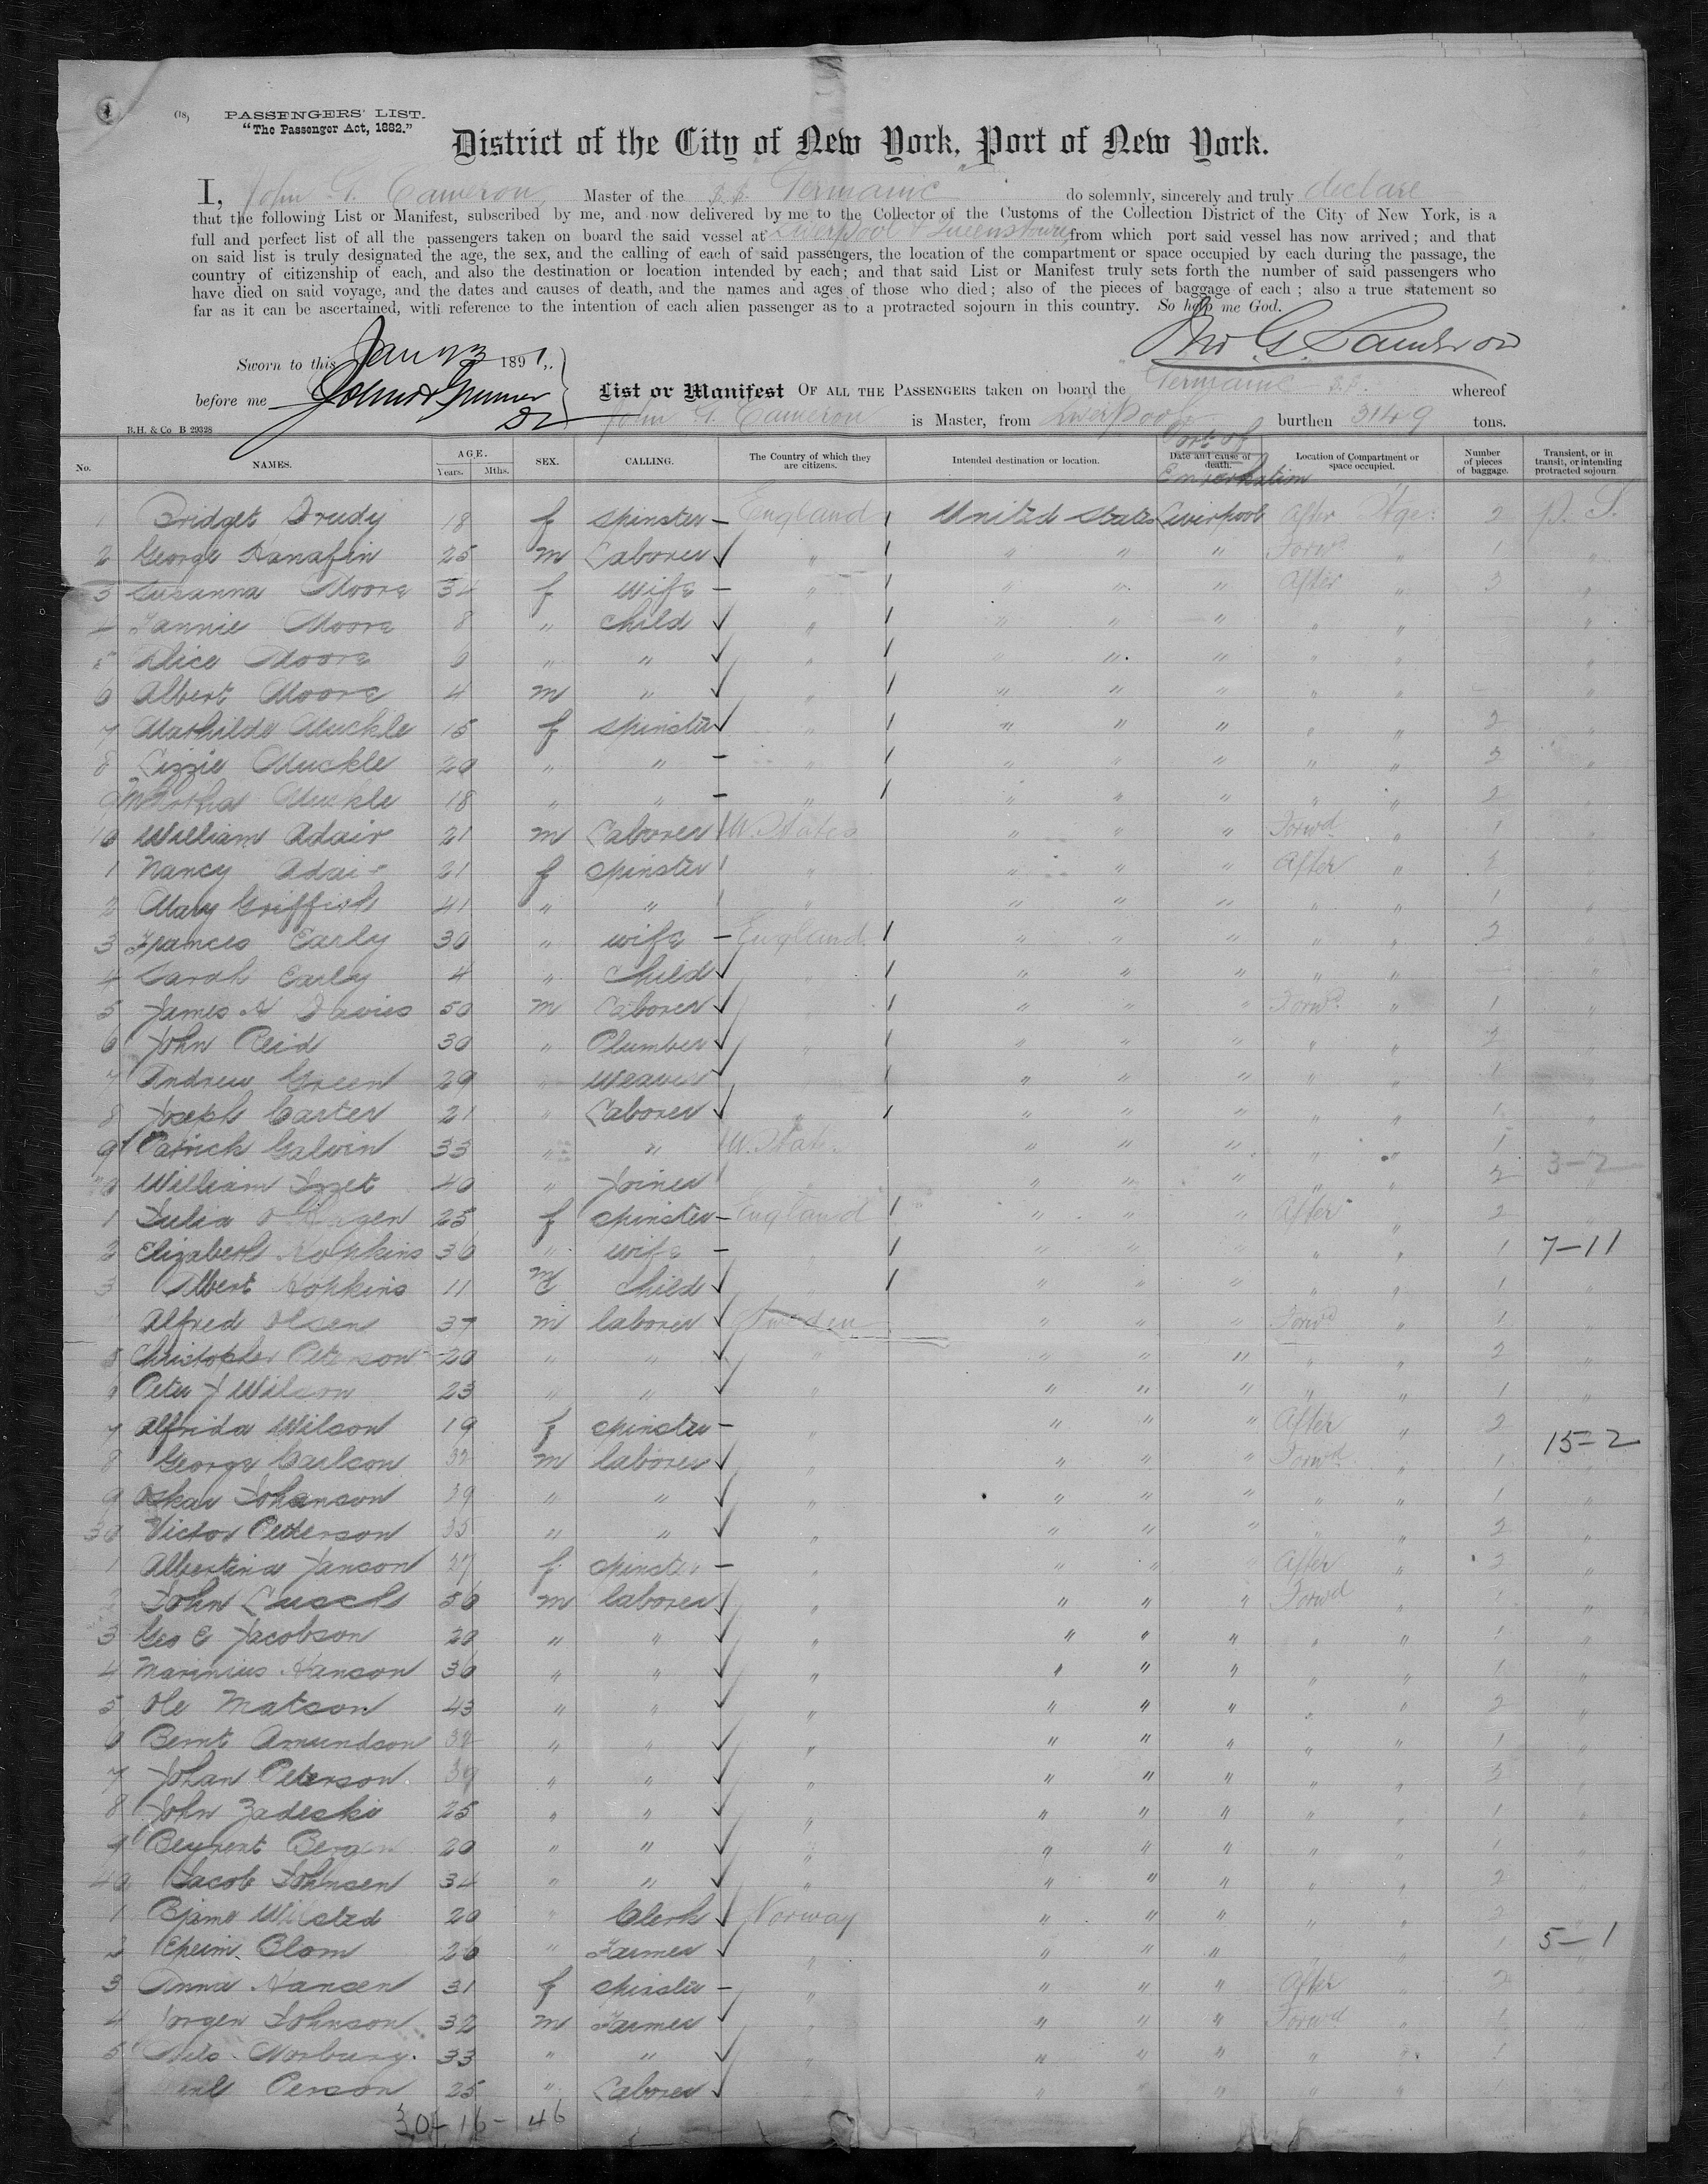 (18)
PASSENGERS' LIST.
"The Passenger Act, 1882."
District of the City of New York, Port of New York.
I, John G. Cameron, Master of the S.S. Germanic do solemnly, sincerely and truly declare
that the following List or Manifest, subscribed by me, and now delivered by me to the Collector of the Customs of the Collection District of the City of New York, is a
full and perfect list of all the passengers taken on board the said vessel at Liverpool & Queenstown, from which port said vessel has now arrived; and that
on said list is truly designated the age, the sex, and the calling of each of said passengers, the location of the compartment or space occupied by each during the passage, the
country of citizenship of each, and also the destination or location intended by each; and that said List or Manifest truly sets forth the number of said passengers who
have died on said voyage, and the dates and causes of death, and the names and ages of those who died; also of the pieces of baggage of each; also a true statement so
far as it can be ascertained, with reference to the intention of each alien passenger as to a protracted sojourn in this country. So help me God.
Jno G. Cameron
Sworn to this Jan 23 1891,.
before me
List or Manifest OF ALL THE PASSENGERS taken on board the Germanic S.S. whereof
John G. Cameron is Master, from Liverpool burthen 3149 tons.
B.H. & Co B 29328
No. NAMES. AGE. Years. Mths. SEX. CALLING. The Country of which they are citizens. Intended destination or location. Date and cause of death. Port of Embarkation Location of Compartment or space occupied. Number of pieces of baggage. Transient, or in transit, or intending protracted sojourn.
1 Bridget Drudy 18 f Spinster England United States Liverpool After Stge. 2 P. S.
2 George Hanafin 25 m Laborer " " " " Forwd " 1 "
3 Susanna Moore 34 f Wife " " " " After " 3 "
4 Fannie Moore 8 " Child " " " " " " "
5 Alice Moore 6 " " " " " " " " "
6 Albert Moore 4 m " " " " " " " "
7 Mathilda Muckle 15 f Spinster " " " " " " 2 "
8 Lizzie Muckle 20 " " " " " " " " 2 "
9 Martha Muckle 18 " " " " " " " " 2 "
10 William Adair 21 m Laborer U. States " " " Forwd " 1 "
1 Nancy Adair 21 f Spinster " " " " After " "
2 Mary Griffith 41 " " " " " " " " 1 "
3 Frances Early 30 " wife England " " " " " 2 "
4 Sarah Early 4 " Child " " " " " "
5 James H Davies 50 m Laborer " " " Forwd " 1 "
6 John Reid 30 " Plumber " " " " " " 2 "
7 Andrew Green 29 " Weaver " " " " " 1 "
8 Joseph Carter 21 " Laborer " " " " " " 1 "
9 Patrick Galvin 33 " " U. Stat. " " " " " 1
William 40 " Joiner " " " " " " 2 3-2
1 Julia 25 f Spinster England " " " After " 2 "
2 Elizabeth Hopkins 36 " wife " " " " " 1 7-11
3 Albert Hopkins 11 m Child " " " " " 1 "
Alfred Olsen 37 m laborer Sweden " " " Forwd " 1 "
5 Christopher Peterson 20 " " " " " " " " 2 "
6 Peter J Wilson 23 " " " " " " " " 1 "
7 Alfrida Wilson 19 f Spinster " " " " After " 2
8 George Carlson 32 m laborer " " " " Forwd " 1 15-2
9 Oskar Johanson 39 " " " " " " " " 1 "
30 Victor Petterson 35 " " " " " " " " 2 "
1 Albertina Janson 27 f Spinster " " " After " 2 "
2 John 56 m laborer " " " " Forwd " 1 "
3 Geo E Jacobson 20 " " " " " " " " 1 "
4 Marinius Hanson 36 " " " " " " " " 1 "
5 Ole Matson 43 " " " " " " " " 2 "
6 Bernt Amundson 32 " " " " " " " " 1 "
7 Johan Peterson 39 " " " " " " " " 3 "
8 John Zadeski 25 " " " " " " " " 1 "
9 Bergen 20 " " " " " " " " 1 "
40 Jacob Johnsen 34 " " " " " " " " 2 "
1 20 " Clerk Norway " " " " " 2
2 Blom 26 " Farmer " " " " " 1 5-1
3 Anna Hansen 31 f Spinster " " " " After " 2 "
4 Jorgen Johnson 32 m Farmer " " " " Forwd " 1 "
5 Nils Norburg. 33 " " " " " " " " 1 "
Person 25 " Laborer " " " " " 1 "
30-16-46